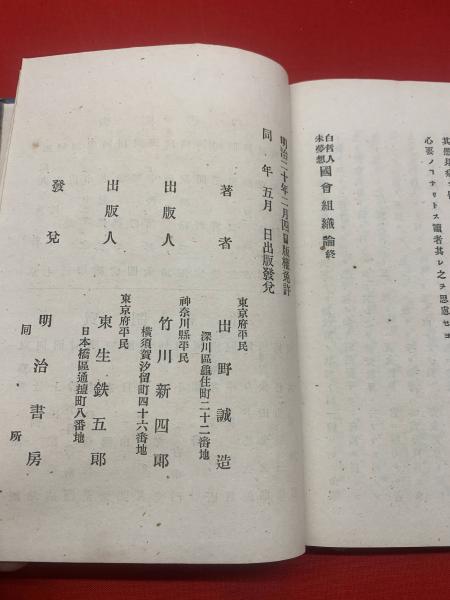 心裏ノコナリトス讀者其レ之ヲ思慮セヨ
白哲人
未夢想
國會組織論終
明治二十年二月四日版權免許
同年五月 日出版發兌
著者
東京府平民
出野誠造
深川區龜住町二十二番地
出版人
神奈川縣平民
竹川新四郎
橫須賀汐留町四十六番地
出版人
東京府平民
東生鉄五郎
日本橋區通壹町八番地
發兌
明治書房
同所